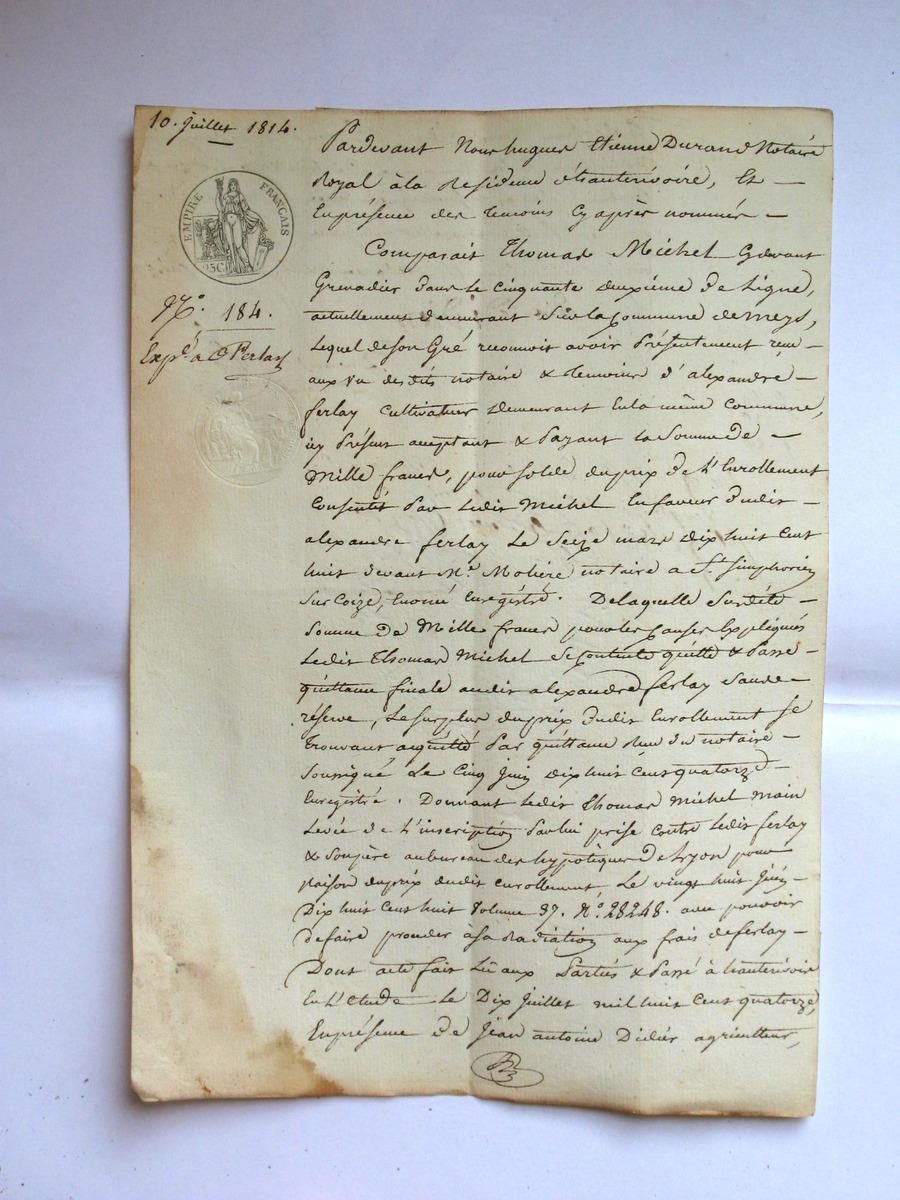 10. juillet 1814.
EMPIRE FRANÇAIS
25C
N.° 184.
Exp.é a Ferlay
Pardevant Nous hugues Etienne Durand Notaire
Royal à la Residence d'hauterivoire, Et —
En présence des temoins Cy après nommés —
Comparait Thomas Michel Cydevant
Grenadier dans le Cinquante deuxième de Ligne,
actuellement demeurant Sur la Commune de meys,
Lequel de son Gré reconnoit avoir Présentement reçu —
aux vu des dits notaire & temoins d'alexandre —
ferlay Cultivateur Demeurant En la même Commune,
icy Présent acceptant & Payant la Somme de —
Mille francs, pour Solde du prix de L'Enrollement
Consenti Par Ledit Michel En faveur dudit —
alexandre ferlay Le Seize mars Dix huit Cent
huit devant M.e Molière notaire a S.t Simphorien
Sur Coize, Enregistré. De laquelle Susdite —
Somme de Mille francs pour les Causes Expliquées
Ledit Thomas Michel Se Contente quitte & Passe
quittance finale audit alexandre ferlay Sans —
réserve, Le Surplus du prix dudit Enrollement Se
trouvant acquitté Par quittance devant notaire —
Soussigné Le Cinq Juin Dix huit Cent quatorze —
Enregistré. Donnant Ledit Thomas Michel Main
Levée de L'inscription Par lui prise Contre Ledit ferlay
& Son père au bureau des hypotèques de Lyon pour
raison du prix dudit enrollement Le vingt huit Juin —
Dix huit Cent huit Volume 37. N.° 28248. avec pouvoir
de faire proceder à Sa Radiation aux frais de ferlay —
Dont acte fait Lû aux Parties & Passé à hauterivoire
En L'etude Le Dix Juillet mil huit Cent quatorze,
En présence de Jean antoine Didier agriculteur,